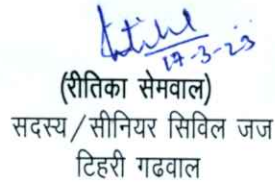 17-3-23
(रीतिका सेमवाल)
सदस्य/सीनियर सिविल जज
टिहरी गढवाल